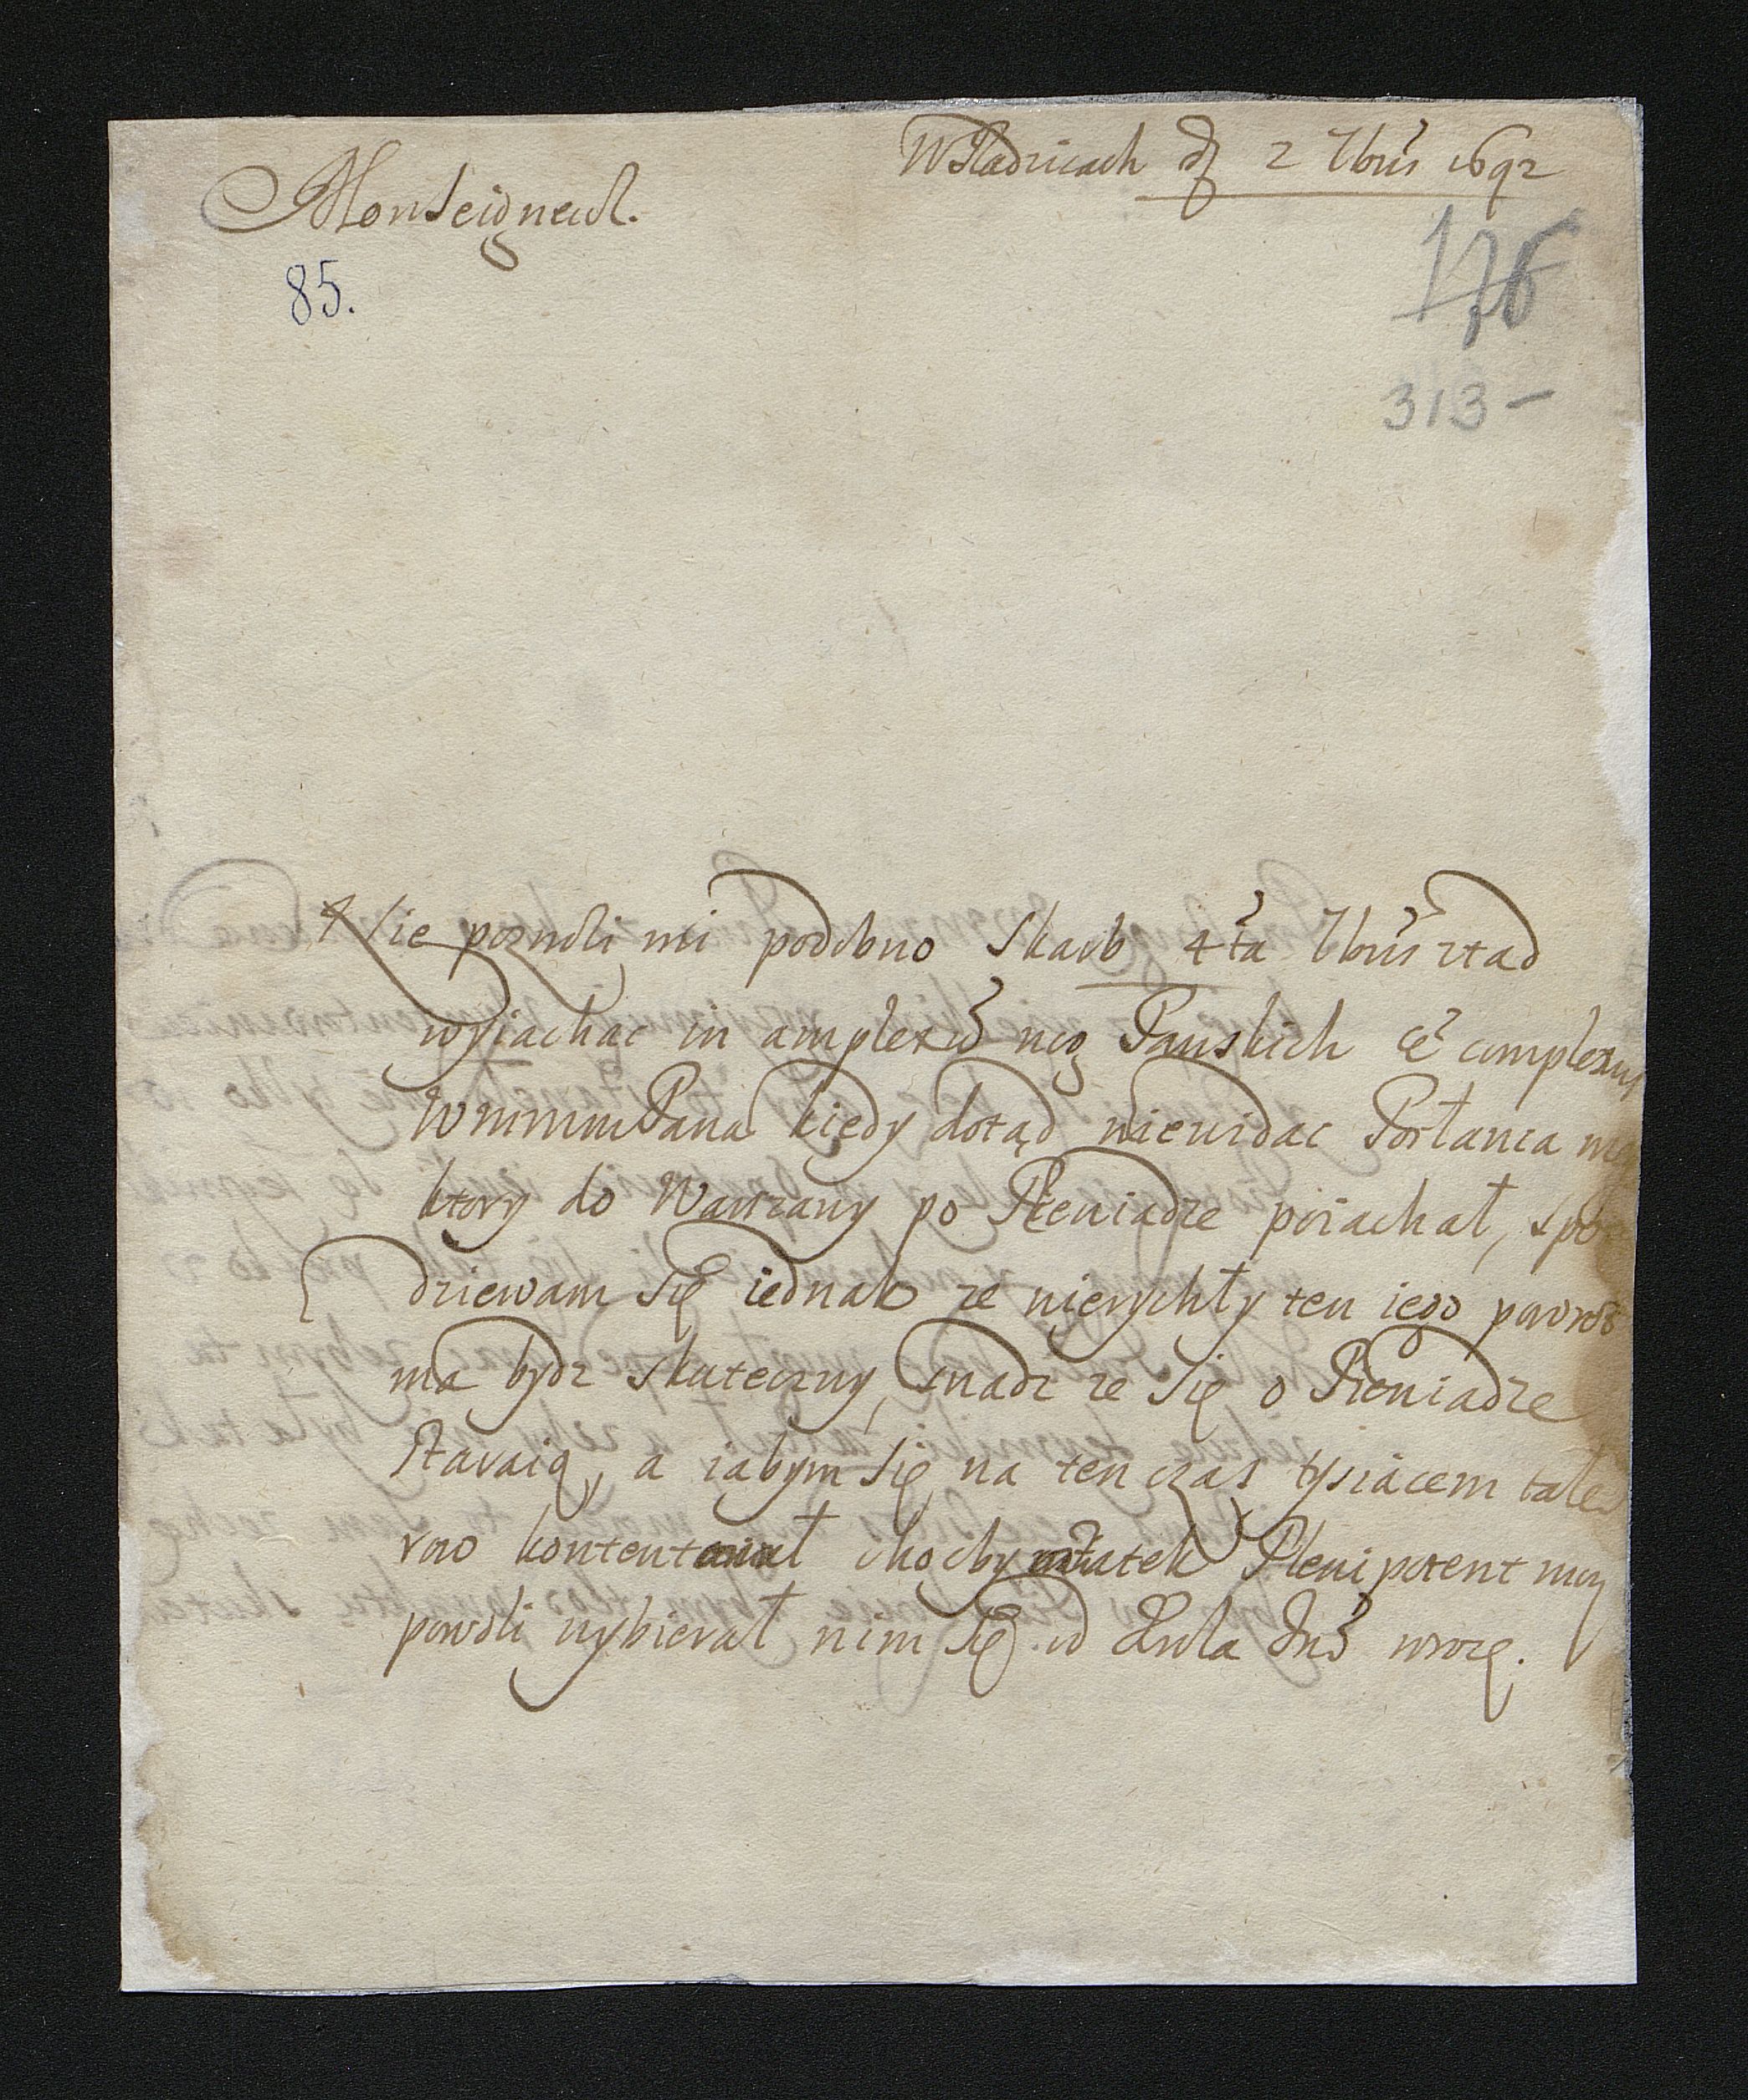 W Radzicach d 2 7bris 1692
Monseigneur.
85.
176
313 -
Nie pozwoli mi podobno Skarb 4ta 7bris ztad
wyiachac in amplexū nog Panskich et complexum
WMMMPana kiedy dotąd niewidac Posłanca meg
ktory do Warszawy po Pieniadze poiachał, spo
dziewam się iednak ze nierychły ten iego powrot
ma bydz skuteczny, snadz ze się o Pieniadze
staraią, a iabym się na ten czas tysiącem tale
row kontentował chocby ostatek Plenipotent moy
powoli wybierał nim się od Krola Jms wrocę.